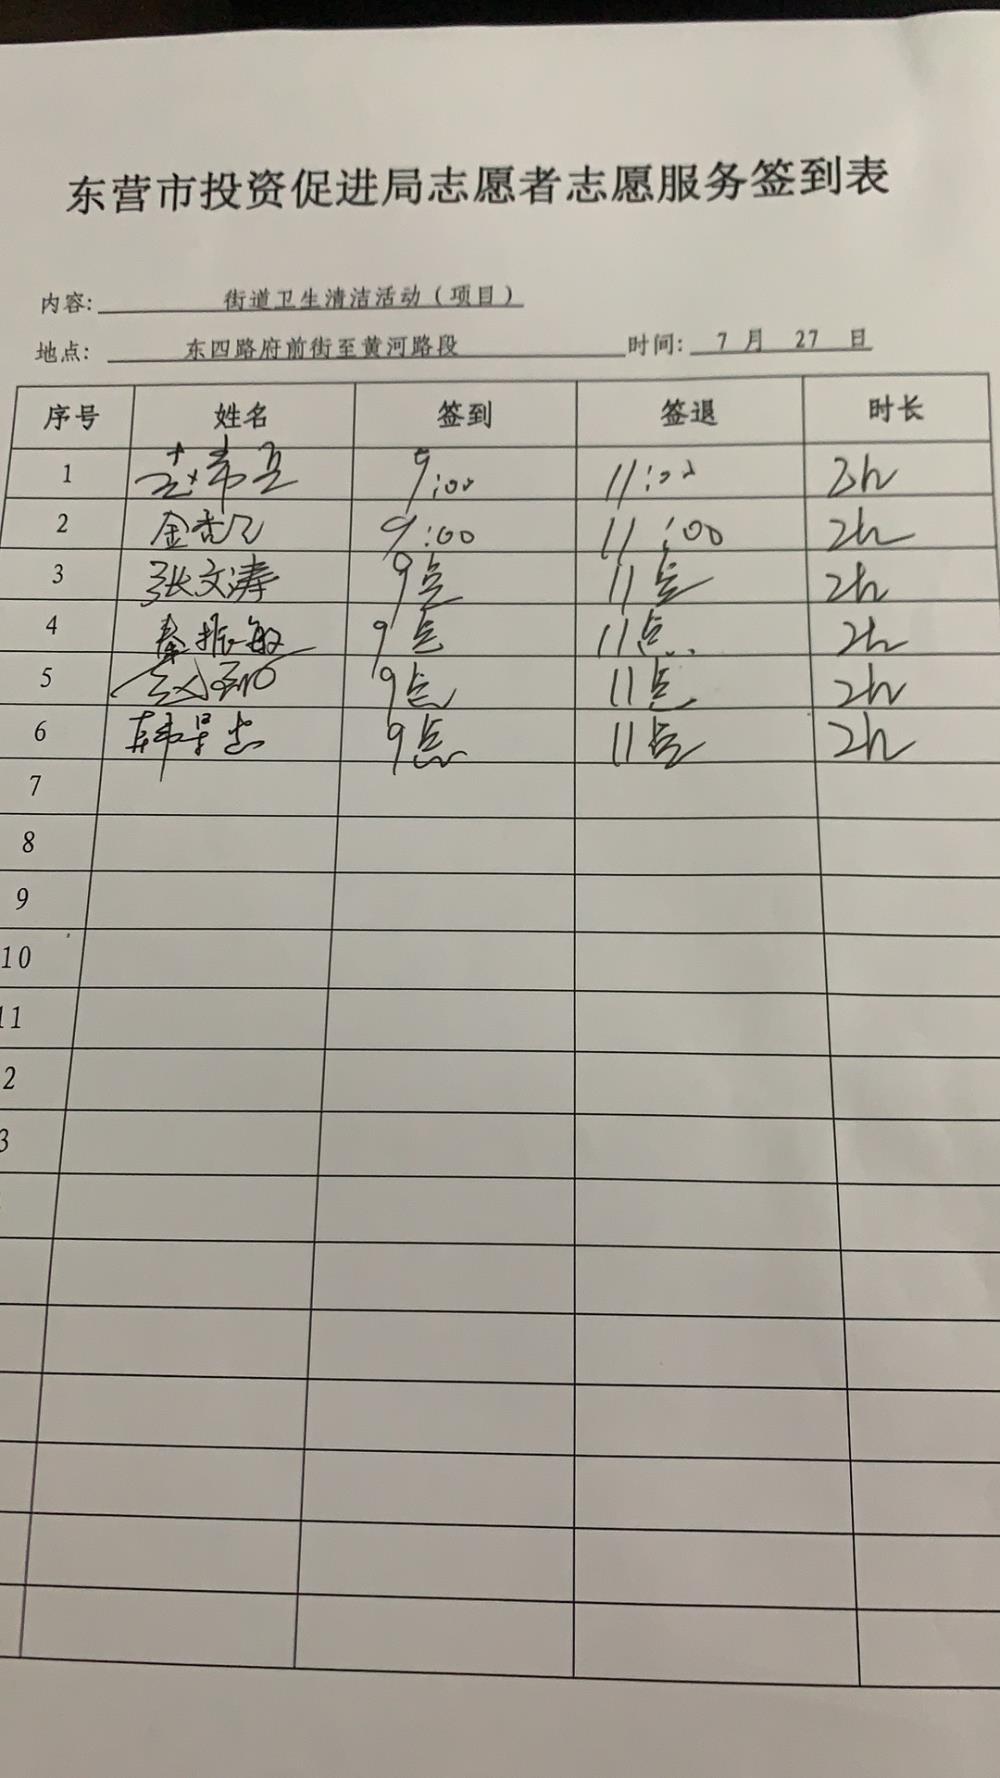 东营市投资促进局志愿者志愿服务签到表
内容: 街道卫生清洁活动（项目）
地点: 东四路府前街至黄河路段 时间: 7 月 27 日
序号 姓名 签到 签退 时长
1 9:00 11:00 2h
2 金 9:00 11:00 2h
3 张文涛 9点 11点 2h
4 秦振敏 9点 11点 2h
5 赵 9点 11点 2h
6 韩 9点 11点 2h
7
8
9
10
11
2
3